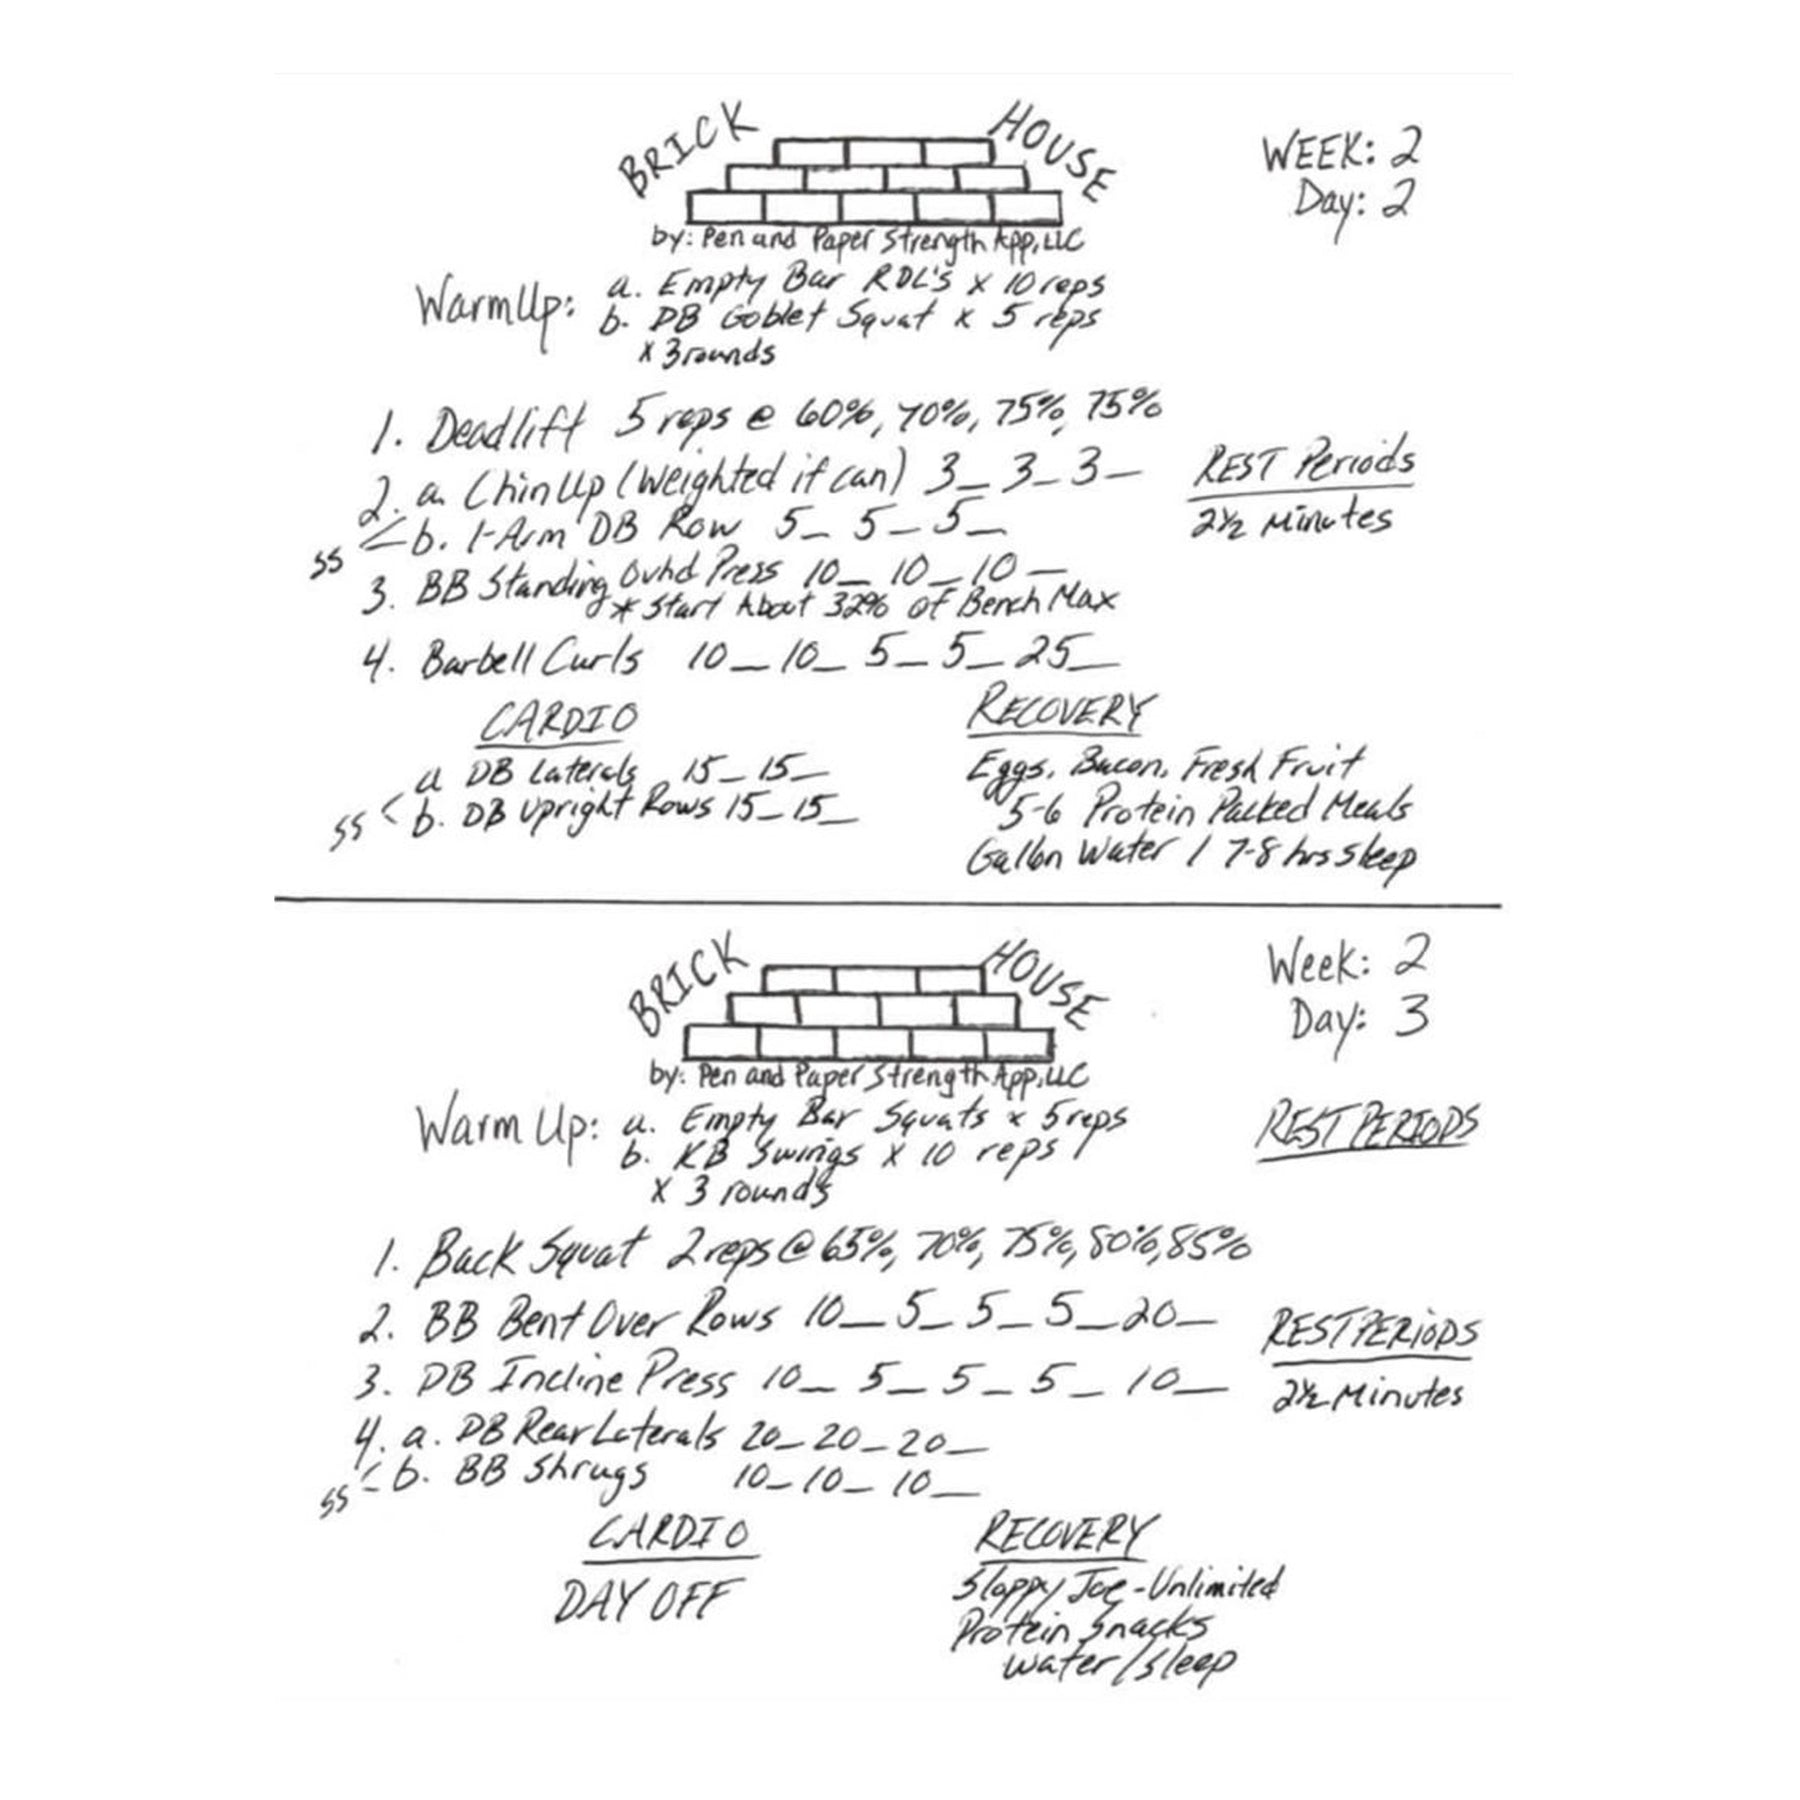 BRICK HOUSE
WEEK: 2
Day: 2
by: Pen and Paper Strength App, LLC
WarmUp: a. Empty Bar RDL's x 10 reps
b. DB Goblet Squat x 5 reps
x 3 rounds
1. Deadlift 5 reps @ 60%, 70%, 75%, 75%
2. a. Chin Up (Weighted if can) 3_ 3_ 3_
REST Periods
2½ Minutes
ss < b. 1-Arm DB Row 5_ 5_ 5_
3. BB Standing Ovhd Press 10_ 10_ 10_
* Start About 32% of Bench Max
4. Barbell Curls 10_ 10_ 5_ 5_ 25_
CARDIO
a DB Laterals 15_ 15_
ss < b. DB Upright Rows 15_ 15_
RECOVERY
Eggs, Bacon, Fresh Fruit
5-6 Protein Packed Meals
Gallon Water / 7-8 hrs sleep
BRICK HOUSE
Week: 2
Day: 3
by: Pen and Paper Strength App, LLC
Warm Up: a. Empty Bar Squats x 5 reps
b. KB Swings x 10 reps
x 3 rounds
REST PERIODS
1. Back Squat 2 reps @ 65%, 70%, 75%, 80%, 85%
2. BB Bent Over Rows 10_ 5_ 5_ 5_ 20_
3. DB Incline Press 10_ 5_ 5_ 5_ 10_
REST PERIODS
2½ Minutes
4. a. DB Rear Laterals 20_ 20_ 20_
ss < b. BB Shrugs 10_ 10_ 10_
CARDIO
DAY OFF
RECOVERY
Sloppy Joe - Unlimited
Protein Snacks
water/sleep